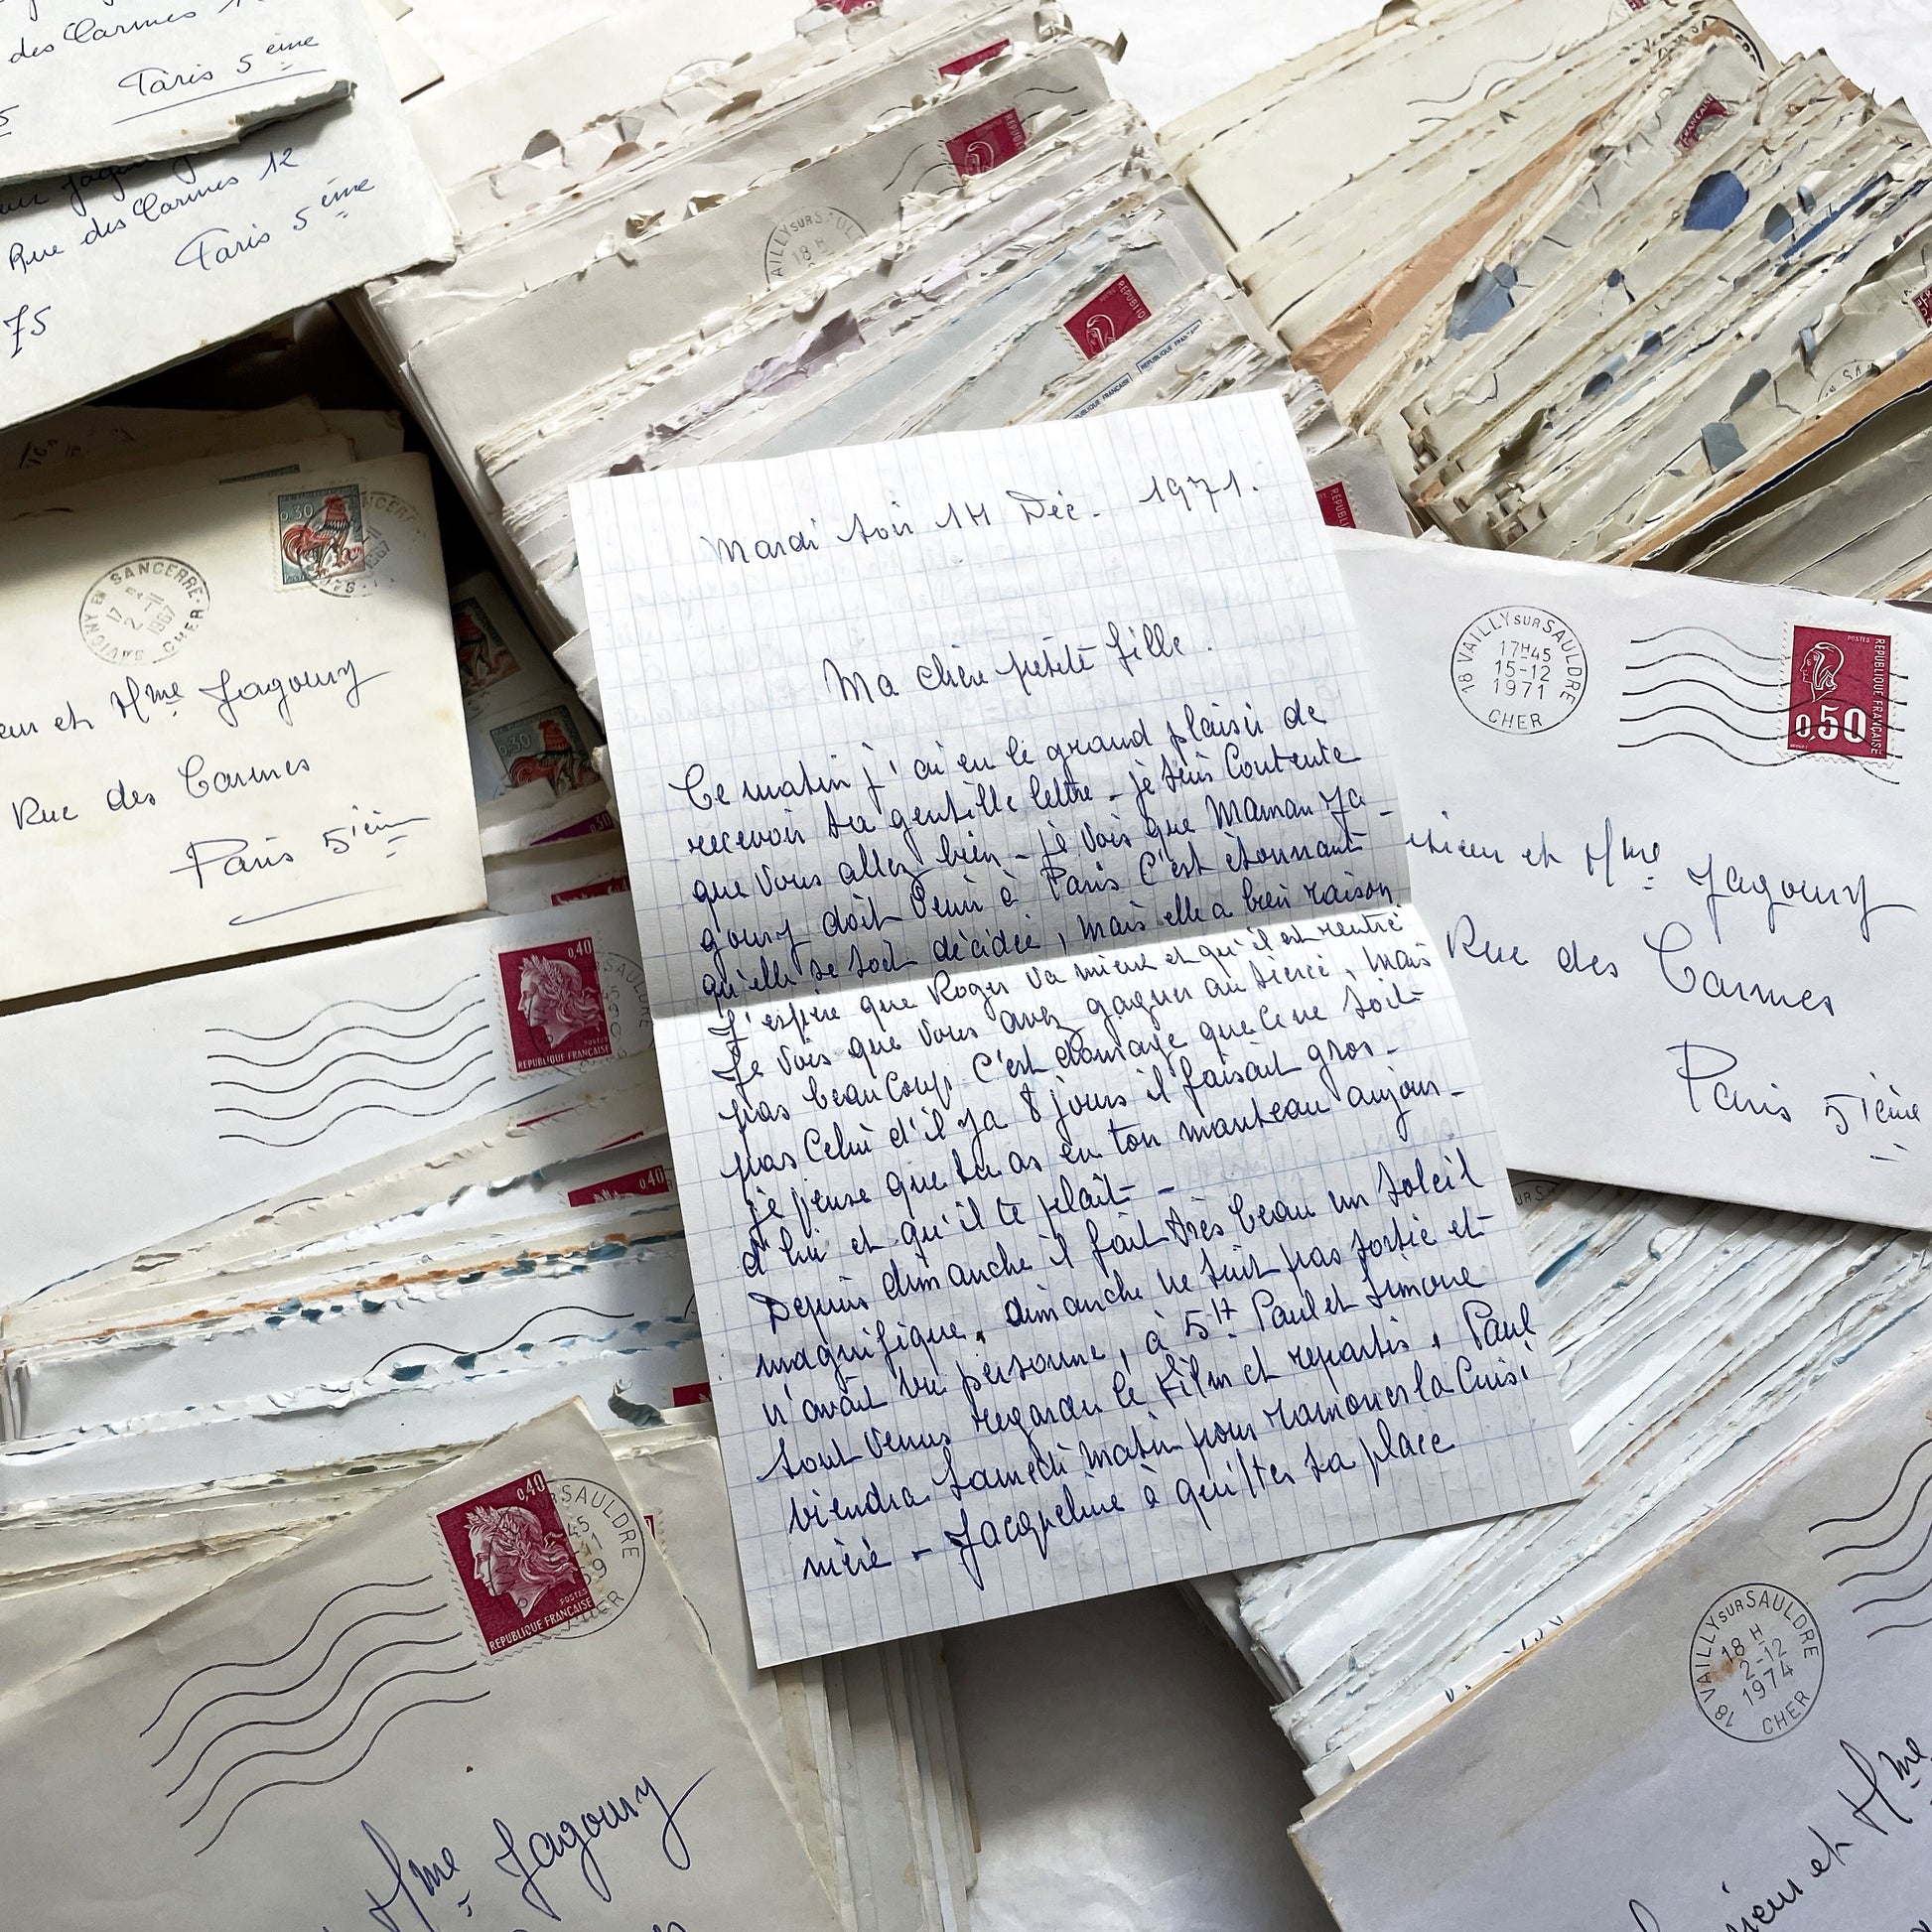 des Carmes 12
Paris 5 ème
Rue des Carmes 12
Paris 5 ème
75
REPUBLIQUE FRANÇAISE
REPUBLIQUE
0,30
SAVIGNY EN SANCERRE
17 H
2-11
1967
CHER
eur et Mme Jagoury
Rue des Carmes
Paris 5ième
0,30
0,40
POSTES
REPUBLIQUE FRANÇAISE
0,40
Mardi soir 14 Déc. 1971.
Ma chère petite fille.
Ce matin j'ai eu le grand plaisir de
recevoir ta gentille lettre - je suis Contente
que vous allez bien - je vois que Maman Ja-
goury doit venir à Paris C'est étonnant
qu'elle se soit décidée, mais elle a bien raison
J'espère que Roger va mieux et qu'il est rentré
Je vois que vous avez gagner au tiercé, mais
pas beaucoup. C'est domage que ce ne soit
pas Celui d'il ya 8 jours il faisait gros-
je pense que tu as eu ton manteau aujour-
d'hui et qu'il te plait -
Depuis dimanche il fait très beau un soleil
magnifique, dimanche ne suit pas sortie et
n'avait vu personne, à 5H Paul et Simone
sont venus regarder le film et repartis. Paul
viendra Samedi matin pour ramoner la Cuisi
nière - Jacqueline à quitter sa place
18 VAILLY SUR SAULDRE
17H45
15-12
1971
CHER
POSTES
REPUBLIQUE FRANÇAISE
0,50
sieur et Mme Jagoury
Rue des Carmes
Paris 5ième
0,40
POSTES
REPUBLIQUE FRANÇAISE
SAULDRE
45
CHER
Mme Jagoury
18 VAILLY SUR SAULDRE
18 H
2-12
1974
CHER
sieur et Mme